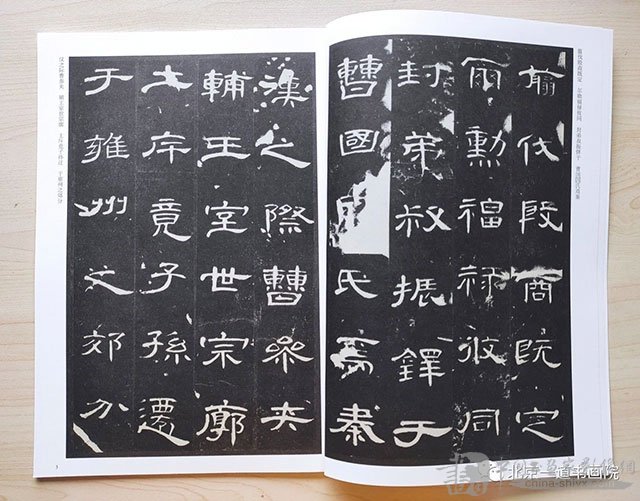 翦伐殷商既定　尔勋福禄攸同　封弟叔振铎于　曹国因氏焉秦
翦伐殷商既定
爾勳福祿攸同
封弟叔振鐸于
曹國因氏焉秦
漢之際曹參夾
輔王室世宗廓
土斥竟子孫遷
于雍州之郊分
汉之际曹参夹　辅王室世宗廓　土斥竟子孙迁　于雍州之郊分
北京一道书画院